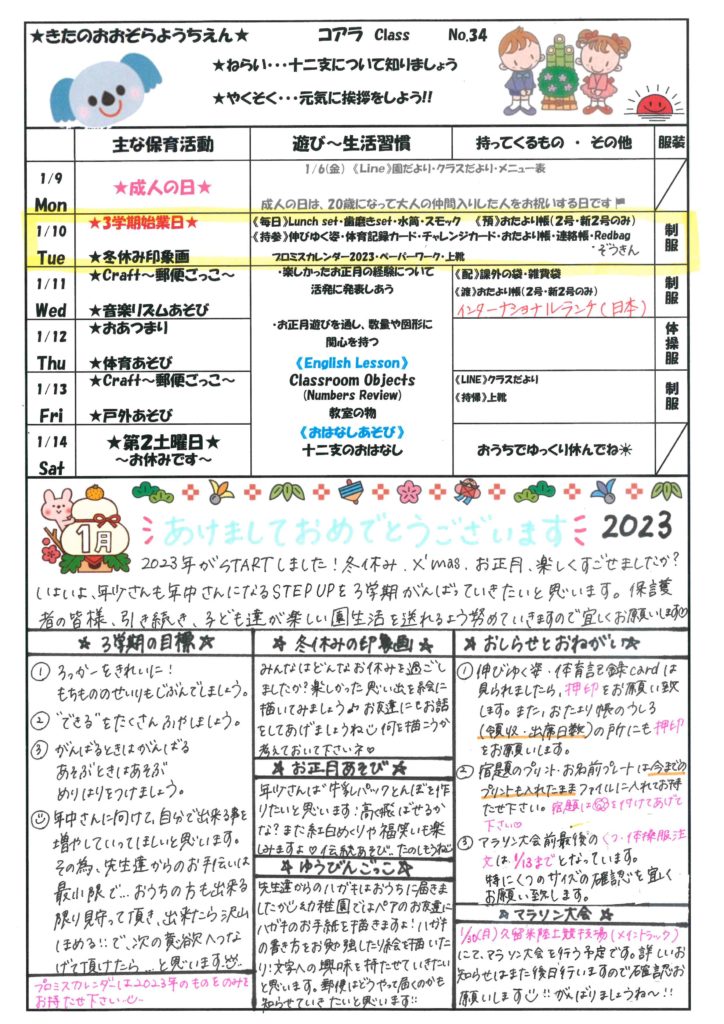 ★きたのおおぞらようちえん★ コアラ Class No.34
★ねらい・・・十二支について知りましょう
★やくそく・・・元気に挨拶をしよう!!
主な保育活動 遊び～生活習慣 持ってくるもの ・ その他 服装
1/9 Mon
★成人の日★
1/6(金) 《Line》園だより・クラスだより・メニュー表
成人の日は、20歳になって大人の仲間入りした人をお祝いする日です
1/10 Tue
★3学期始業日★
★冬休み印象画
《毎日》Lunch set・歯磨きset・水筒・スモック 《預》おたより帳(2号・新2号のみ)
《持参》伸びゆく姿・体育記録カード・チャレンジカード・おたより帳・連絡帳・Redbag
プロミスカレンダー2023・ペーパーワーク・上靴 ぞうきん
制服
1/11 Wed
★Craft～郵便ごっこ～
★音楽リズムあそび
・楽しかったお正月の経験について
活発に発表しあう
《配》課外の袋・雑費袋
《渡》おたより帳(2号・新2号のみ)
インターナショナルランチ(日本)
制服
1/12 Thu
★おあつまり
★体育あそび
・お正月遊びを通し、数量や図形に
関心を持つ
《English Lesson》
体操服
1/13 Fri
★Craft～郵便ごっこ～
★戸外あそび
Classroom Objects
(Numbers Review)
教室の物
《LINE》クラスだより
《持帰》上靴
制服
1/14 Sat
★第2土曜日★
～お休みです～
《おはなしあそび》
十二支のおはなし
おうちでゆっくり休んでね☀
1月
あけましておめでとうございます 2023
2023年がSTARTしました！冬休み、X'mas、お正月、楽しくすごせましたか？
いよいよ、年少さんも年中さんになるSTEP UPを3学期がんばっていきたいと思います。保護
者の皆様、引き続き、子ども達が楽しい園生活を送れるよう努めていきますので宜しくお願いします♡
★ 3学期の目標 ★
① ろっかーをきれいに！
もちもののせいりもじぶんでしましょう。
② "できる"をたくさんふやしましょう。
③ がんばるときはがんばる
あそぶときはあそぶ
めりはりをつけましょう。
年中さんに向けて、自分で出来る事を
増やしていってほしいと思います。
その為、先生達からのお手伝いは
最小限で…おうちの方も出来る
限り見守って頂き、出来たら沢山
ほめる!!で、次の意欲へつな
げて頂けたら…と思います。
プロミスカレンダーは2023年のものをのみを
お持たせ下さい
★ 冬休みの印象画 ★
みんなはどんなお休みを過ごし
ましたか？楽しかった思い出を絵に
描いてみましょう♪お友達にもお話
をしてあげましょうね 何を描こうか
考えておいて下さいネ♡
★ お正月あそび ★
年少さんは"牛乳パックとんぼ"を
作りたいと思います！高く飛ばせるか
な？また紅白めくりや福笑いも楽
しみますよ♡伝統あそび、たのしもうね
★ ゆうびんごっこ ★
先生達からのハガキはおうちに届きま
したか 幼稚園ではペアのお友達に
ハガキのお手紙を描きますよ！ハガキ
の書き方をお勉強したり絵を描いた
り！文字への興味を持たせていきたい
と思います。郵便はどうやって届くのかも
知らせていきたいと思います!!
★ おしらせとおねがい ★
① 伸びゆく姿・体育記録cardは
見られましたら、押印をお願い致
します。また、おたより帳のうしろ
(領収・出席日数)の所にも押印
をお願いします。
② 宿題のプリント・お名前プレートは今までの
プリントも入れたままファイルに入れてお持
たせ下さい。宿題は を付けてあげて
下さい♡
③ マラソン大会前最後のくつ・体操服注
文は1/13までとなっています。
特にくつのサイズの確認を宜しく
お願い致します。
★ マラソン大会 ★
1/30(月)久留米陸上競技場(メイントラック)
にて、マラソン大会を行う予定です。詳しいお
知らせはまた後日行いますので確認お
願いします!!がんばりましょうね～!!